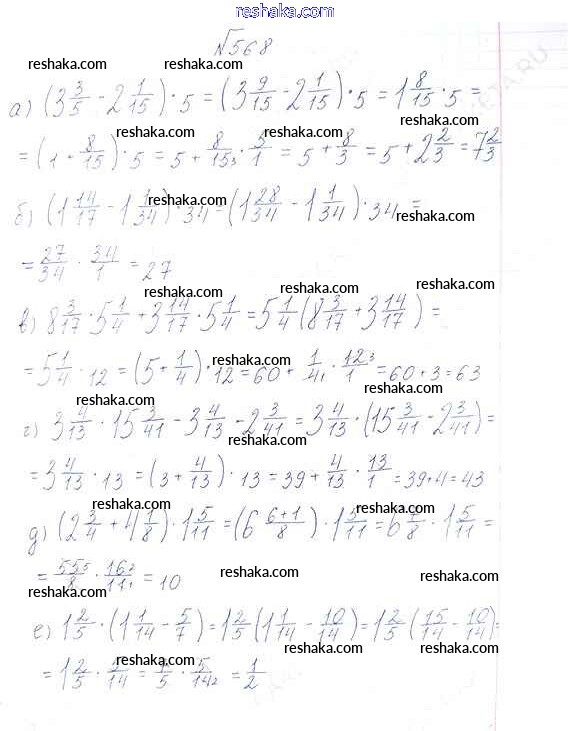 reshaka.com
√568
reshaka.com reshaka.com
а) (3 3/5 - 2 1/15) · 5 = (3 9/15 - 2 1/15) · 5 = 1 8/15 · 5 =
reshaka.com reshaka.com
= (1 + 8/15) · 5 = 5 + 8/15 3 · 5/1 = 5 + 8/3 = 5 + 2 2/3 = 7 2/3
reshaka.com reshaka.com
б) (1 14/17 - 1 1/34) · 34 = (1 28/34 - 1 1/34) · 34 =
reshaka.com reshaka.com
= 27/34 · 34/1 = 27
reshaka.com reshaka.com reshaka.com
в) 8 3/17 · 5 1/4 + 3 14/17 · 5 1/4 = 5 1/4 (8 3/17 + 3 14/17) =
reshaka.com reshaka.com
= 5 1/4 · 12 = (5 + 1/4) · 12 = 60 + 1/4 1 · 12 3/1 = 60 + 3 = 63
reshaka.com reshaka.com
г) 3 4/13 · 15 3/41 - 3 4/13 · 2 3/41 = 3 4/13 · (15 3/41 - 2 3/41) =
reshaka.com
= 3 4/13 · 13 = (3 + 4/13) · 13 = 39 + 4/13 · 13/1 = 39 + 4 = 43
reshaka.com reshaka.com
д) (2 3/4 + 4 1/8) · 1 5/11 = (6 6+1/8) · 1 5/11 = 6 7/8 · 1 5/11 =
= 55 5/8 · 16 2/11 1 = 10
reshaka.com reshaka.com
reshaka.com reshaka.com
е) 1 2/5 · (1 1/14 - 5/7) = 1 2/5 (1 1/14 - 10/14) = 1 2/5 (15/14 - 10/14) =
reshaka.com reshaka.com
= 1 2/5 · 5/14 = 7/5 · 5/14 2 = 1/2
reshaka.com